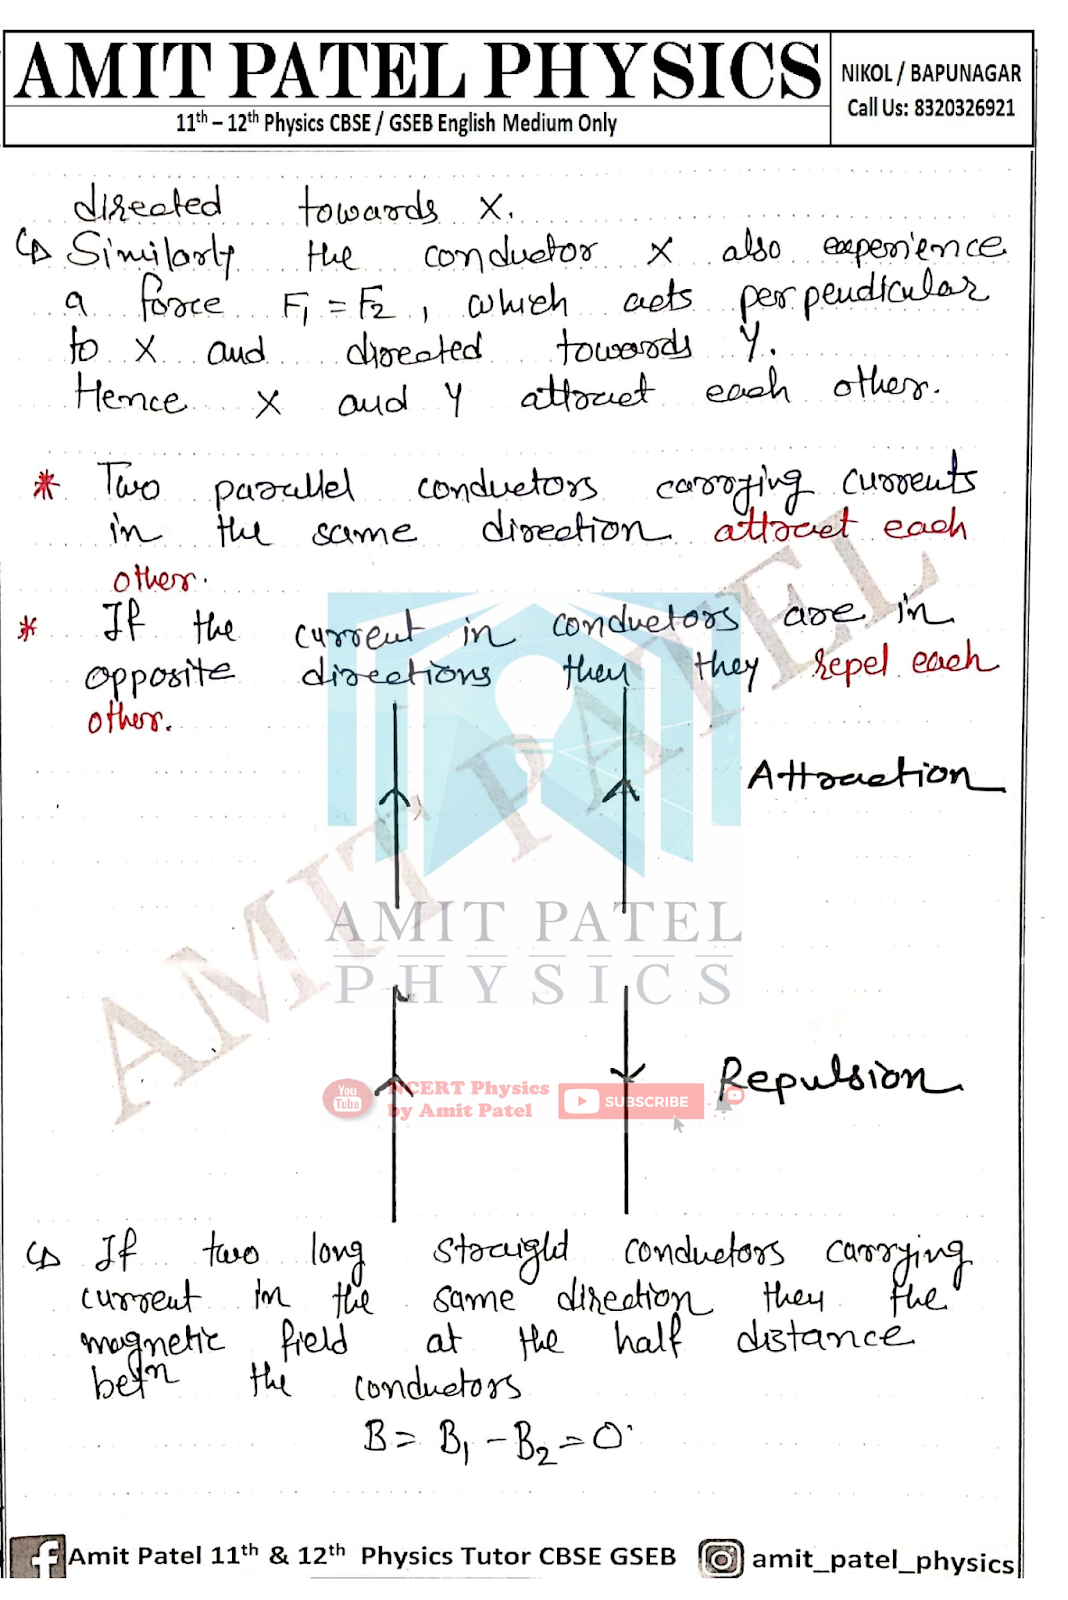 AMIT PATEL PHYSICS
11th – 12th Physics CBSE / GSEB English Medium Only
NIKOL / BAPUNAGAR
Call Us: 8320326921
directed towards X.
Similarly the conductor X also experience
a force F1 = F2, which acts perpendicular
to X and directed towards Y.
Hence X and Y attract each other.
* Two parallel conductors carrying currents
in the same direction attract each
other.
* If the current in conductors are in
opposite directions then they repel each
other.
Attraction
AMIT PATEL
AMIT PATEL
PHYSICS
Repulsion
You Tube
NCERT Physics
by Amit Patel
SUBSCRIBE
If two long straight conductors carrying
current in the same direction then the
magnetic field at the half distance
betn the conductors
B = B1 - B2 = 0
Amit Patel 11th & 12th Physics Tutor CBSE GSEB
amit_patel_physics